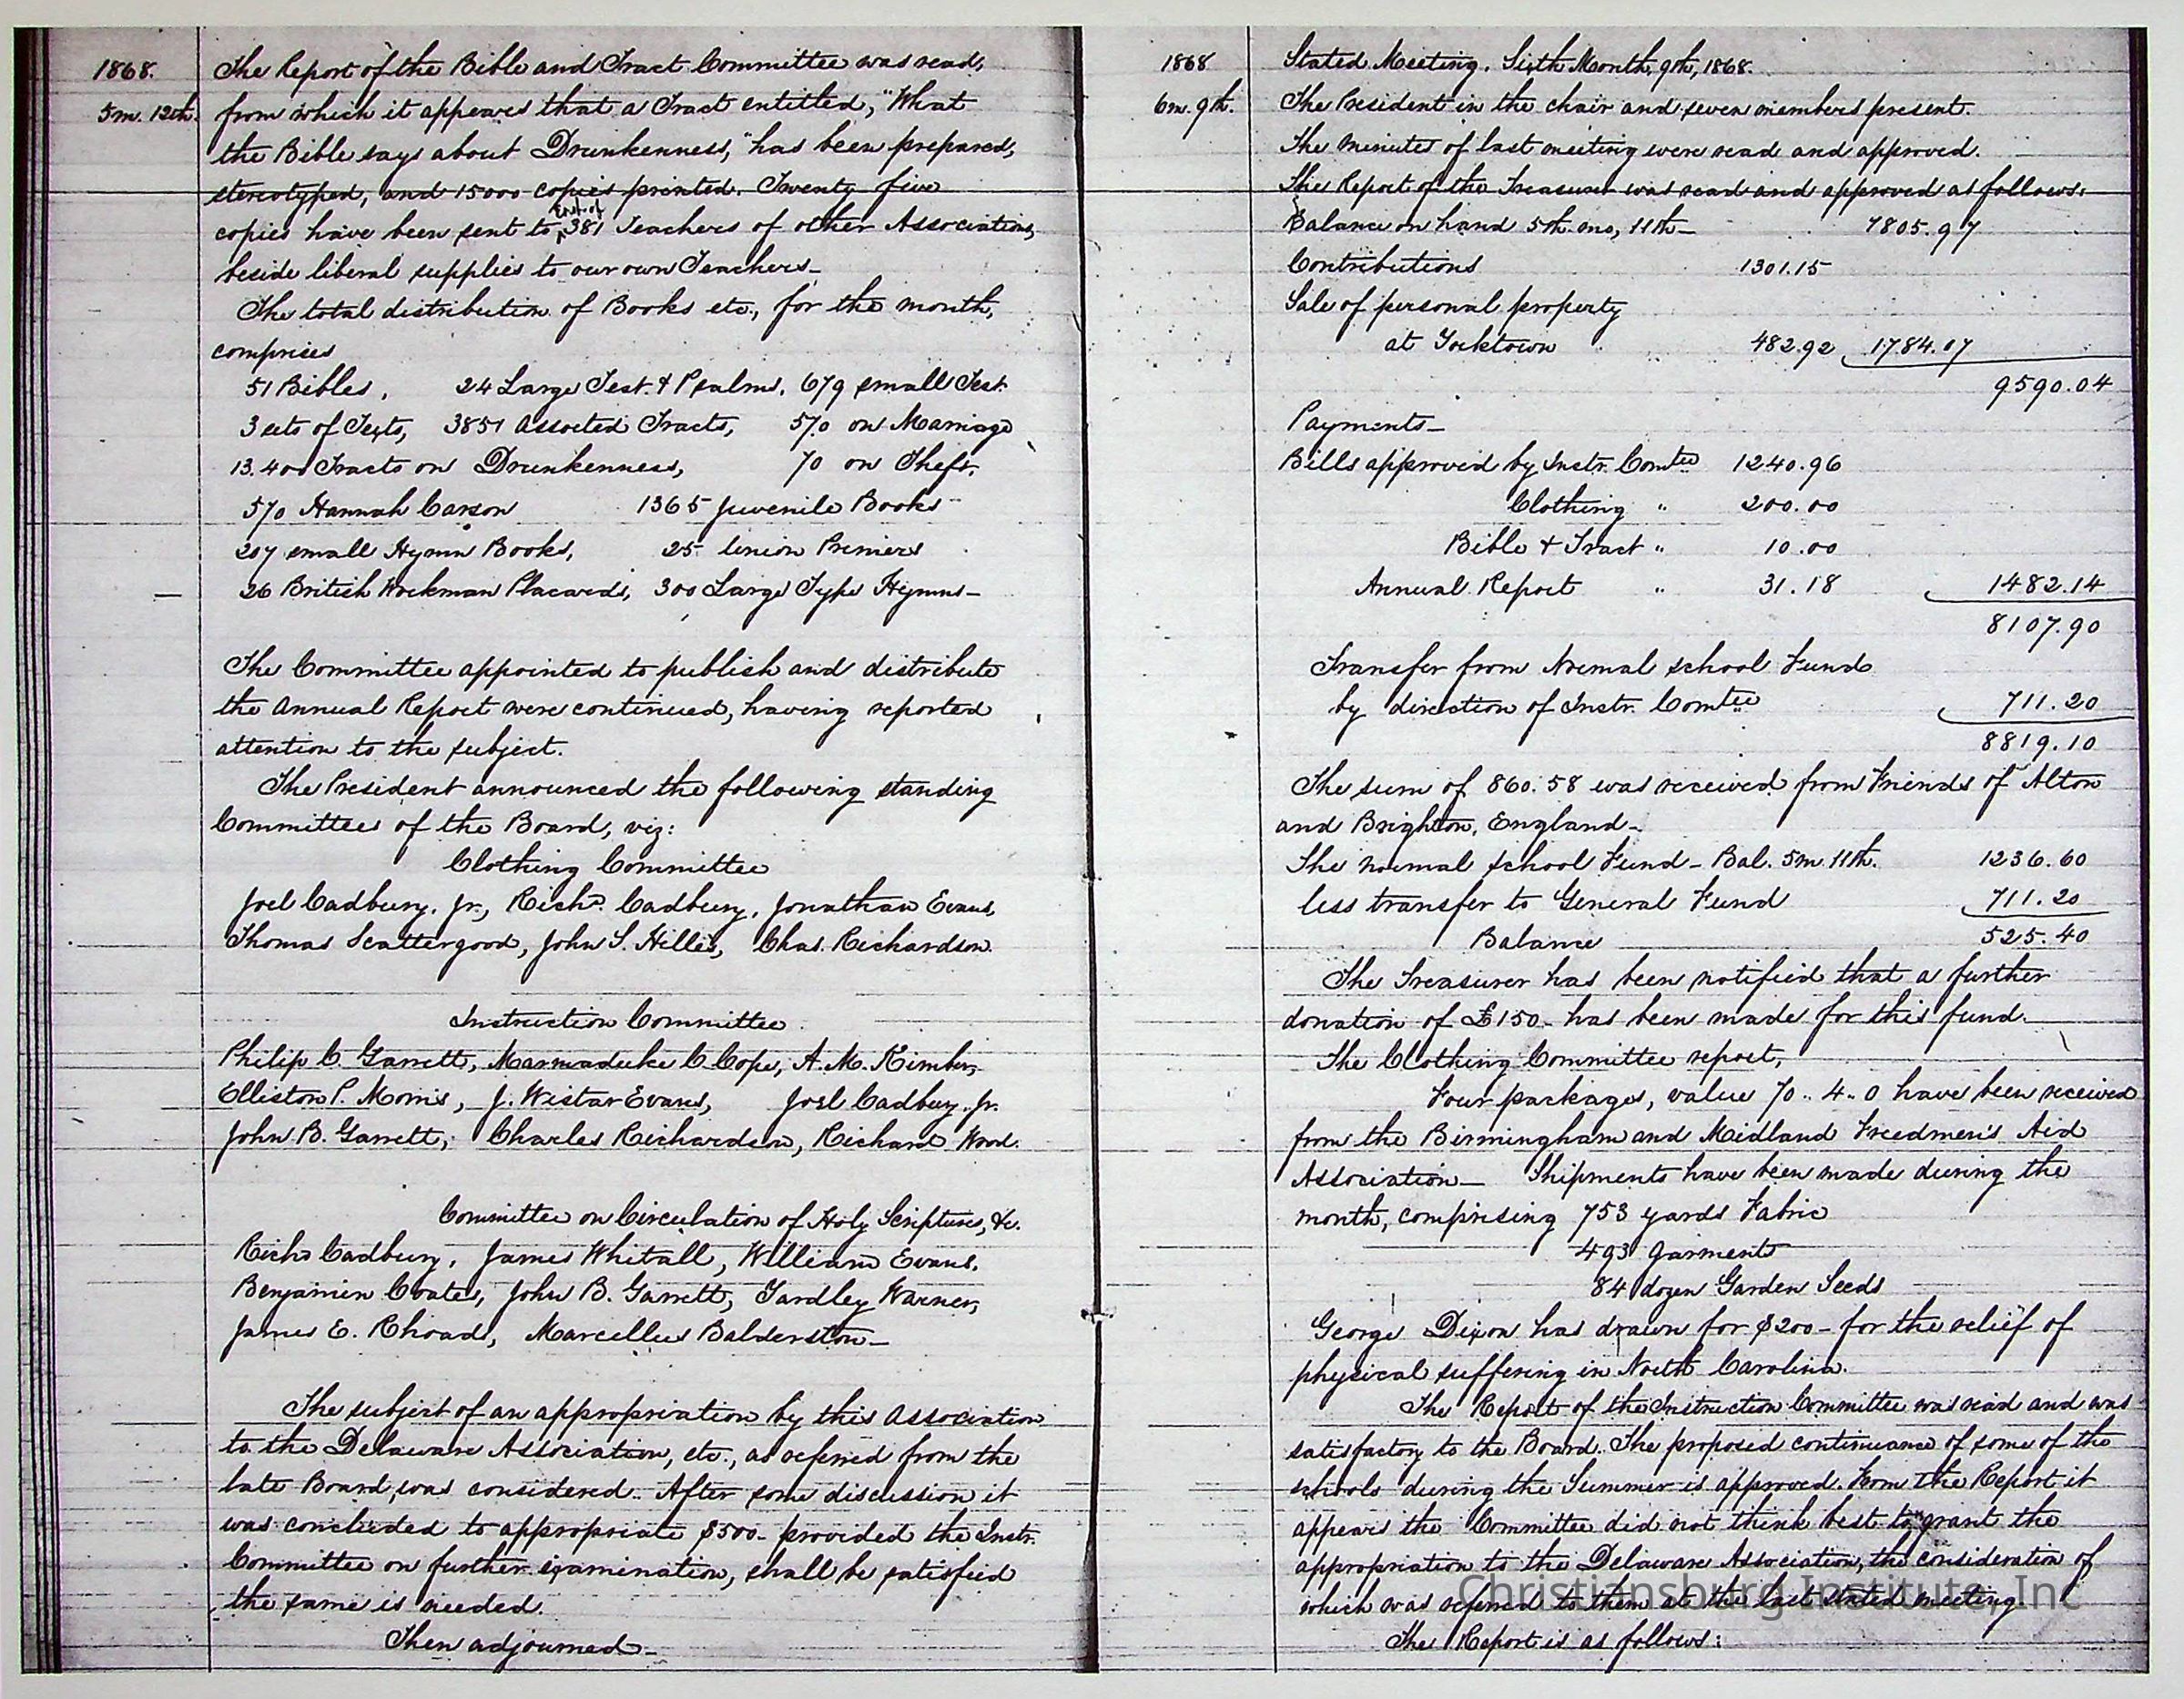 1868.
5m. 12th.
The Report of the Bible and Tract Committee was read,
from which it appears that a Tract entitled, "What
the Bible says about Drunkenness," has been prepared,
stereotyped, and 15000 copies printed. Twenty five
copies have been sent to each of 381 Teachers of other Associations,
beside liberal supplies to our own Teachers—
The total distribution of Books etc., for the month,
comprises
51 Bibles, 24 Large Test. & Psalms, 679 small Test.
3 sets of Texts, 3851 Assorted Tracts, 570 on Marriage
13.400 Tracts on Drunkenness, 70 on Theft,
570 Hannah Carson 1365 Juvenile Books
207 small Hymn Books, 25 Union Primers
26 British Workman Placards, 300 Large Type Hymns—
The Committee appointed to publish and distribute
the Annual Report were continued, having reported
attention to the subject.
The President announced the following standing
Committees of the Board, viz:
Clothing Committee
Joel Cadbury, Jr., Richd. Cadbury, Jonathan Evans,
Thomas Scattergood, John S. Hilles, Chas. Richardson.
Instruction Committee
Philip C. Garrett, Marmaduke C. Cope, A. M. Kimber,
Elliston P. Morris, J. Wistar Evans, Joel Cadbury, Jr.
John B. Garrett, Charles Richardson, Richard Wood.
Committee on Circulation of Holy Scriptures, &c.
Richd Cadbury, James Whitall, William Evans,
Benjamin Coates, John B. Garrett, Yardley Warner,
James E. Rhoads, Marcellus Balderston—
The subject of an appropriation by this Association
to the Delaware Association, etc., as referred from the
late Board, was considered. After some discussion it
was concluded to appropriate $500– provided the Instr.
Committee on further examination, shall be satisfied
the same is needed.
Then adjourned—
1868
6m. 9th.
Stated Meeting. Sixth Month, 9th, 1868.
The President in the chair and seven members present.
The minutes of last meeting were read and approved.
The Report of the Treasurer was read and approved as follows:
Balance on hand 5th. mo, 11th— 7805.97
Contributions 1301.15
Sale of personal property
at Yorktown 482.92 1784.07
9590.04
Payments—
Bills approved by Instr. Comtee 1240.96
Clothing " 200.00
Bible & Tract " 10.00
Annual Report " 31.18 1482.14
8107.90
Transfer from Normal school Fund
by direction of Instr. Comtee 711.20
8819.10
The sum of 860.58 was received from Friends of Alton
and Brighton, England—
The normal school Fund – Bal. 5m. 11th. 1236.60
less transfer to General Fund 711.20
Balance 525.40
The Treasurer has been notified that a further
donation of £150– has been made for this fund.
The Clothing Committee report,
Four packages, value 70.. 4.. 0 have been received
from the Birmingham and Midland Freedmen's Aid
Association— Shipments have been made during the
month, comprising 753 yards Fabric
493 Garments
84 dozen Garden Seeds
George Dixon has drawn for $200– for the relief of
physical suffering in North Carolina.
The Report of the Instruction Committee was read and was
satisfactory to the Board. The proposed continuance of some of the
schools during the Summer is approved. From the Report it
appears the Committee did not think best to grant the
appropriation to the Delaware Association, the consideration of
which was referred to them at the last stated meeting
The Report is as follows:
Christiansburg Institute, Inc